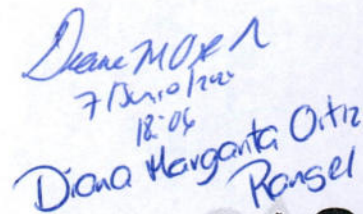 Diana M Ort R
7/Junio/2020
18:04
Diana Margarita Ortiz
Rangel